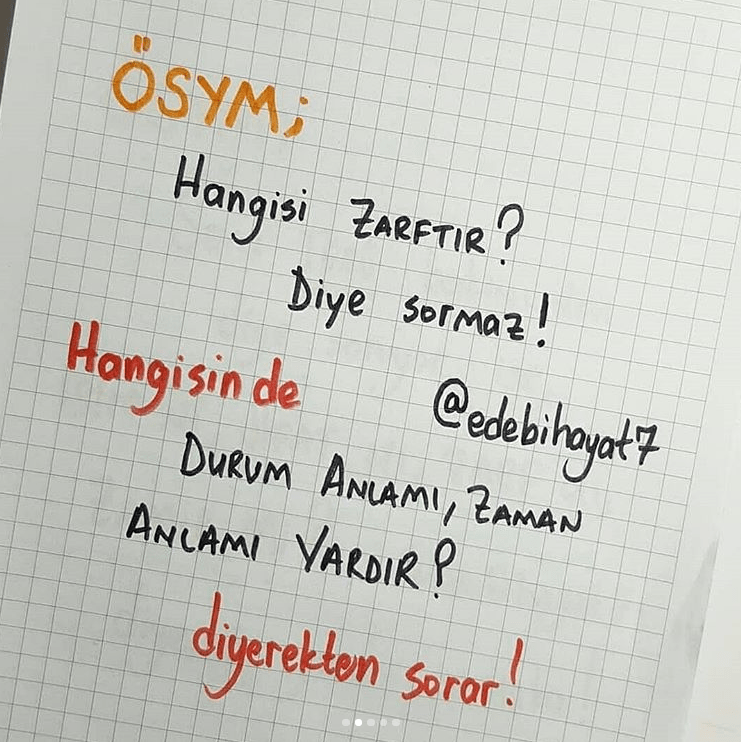 ÖSYM;
Hangisi ZARFTIR?
Diye sormaz!
Hangisinde
@edebihayat7
DURUM ANLAMI, ZAMAN
ANLAMI VARDIR?
diyerekten sorar!